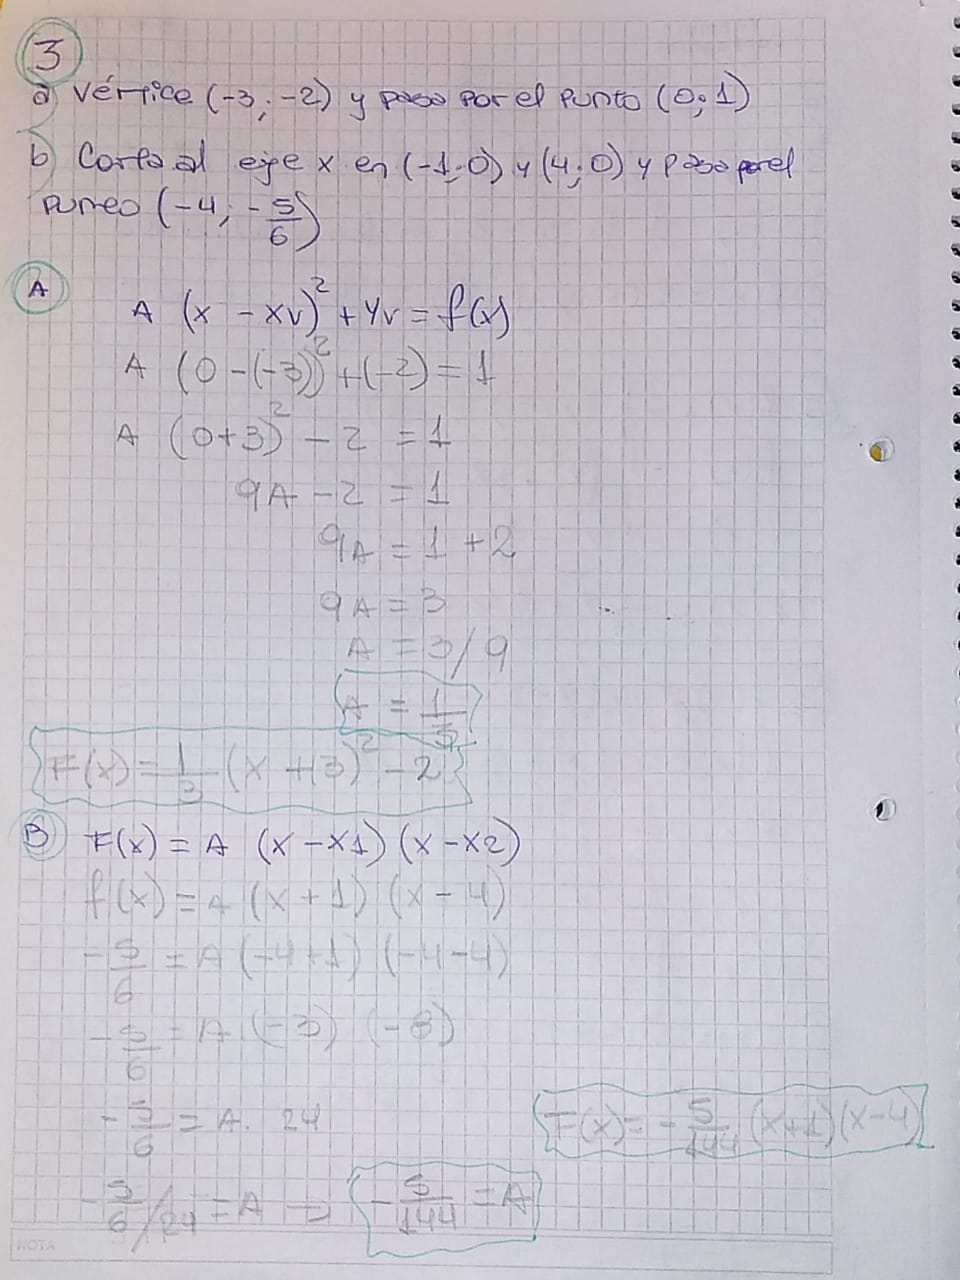 3
a) Vértice (-3; -2) y pasa por el punto (0; 1)
b) Corta al eje x en (-1; 0) y (4; 0) y pasa por el
punto (-4; -5/6)
A
A (x - xv)² + yv = f(x)
A (0 - (-3))² + (-2) = 1
A (0+3)² - 2 = 1
9A - 2 = 1
9A = 1 + 2
9A = 3
A = 3/9
A = 1/3
F(x) = 1/3 (x + (3)² - 2
B F(x) = A (x - x1) (x - x2)
f(x) = A (x + 1) (x - 4)
-5/6 = A (-4+1) (-4-4)
-5/6 = A (-3) (-8)
-5/6 = A. 24
F(x) = -5/144 (x+1) (x-4)
-5/6 / 24 = A → -5/144 = A
NOTA